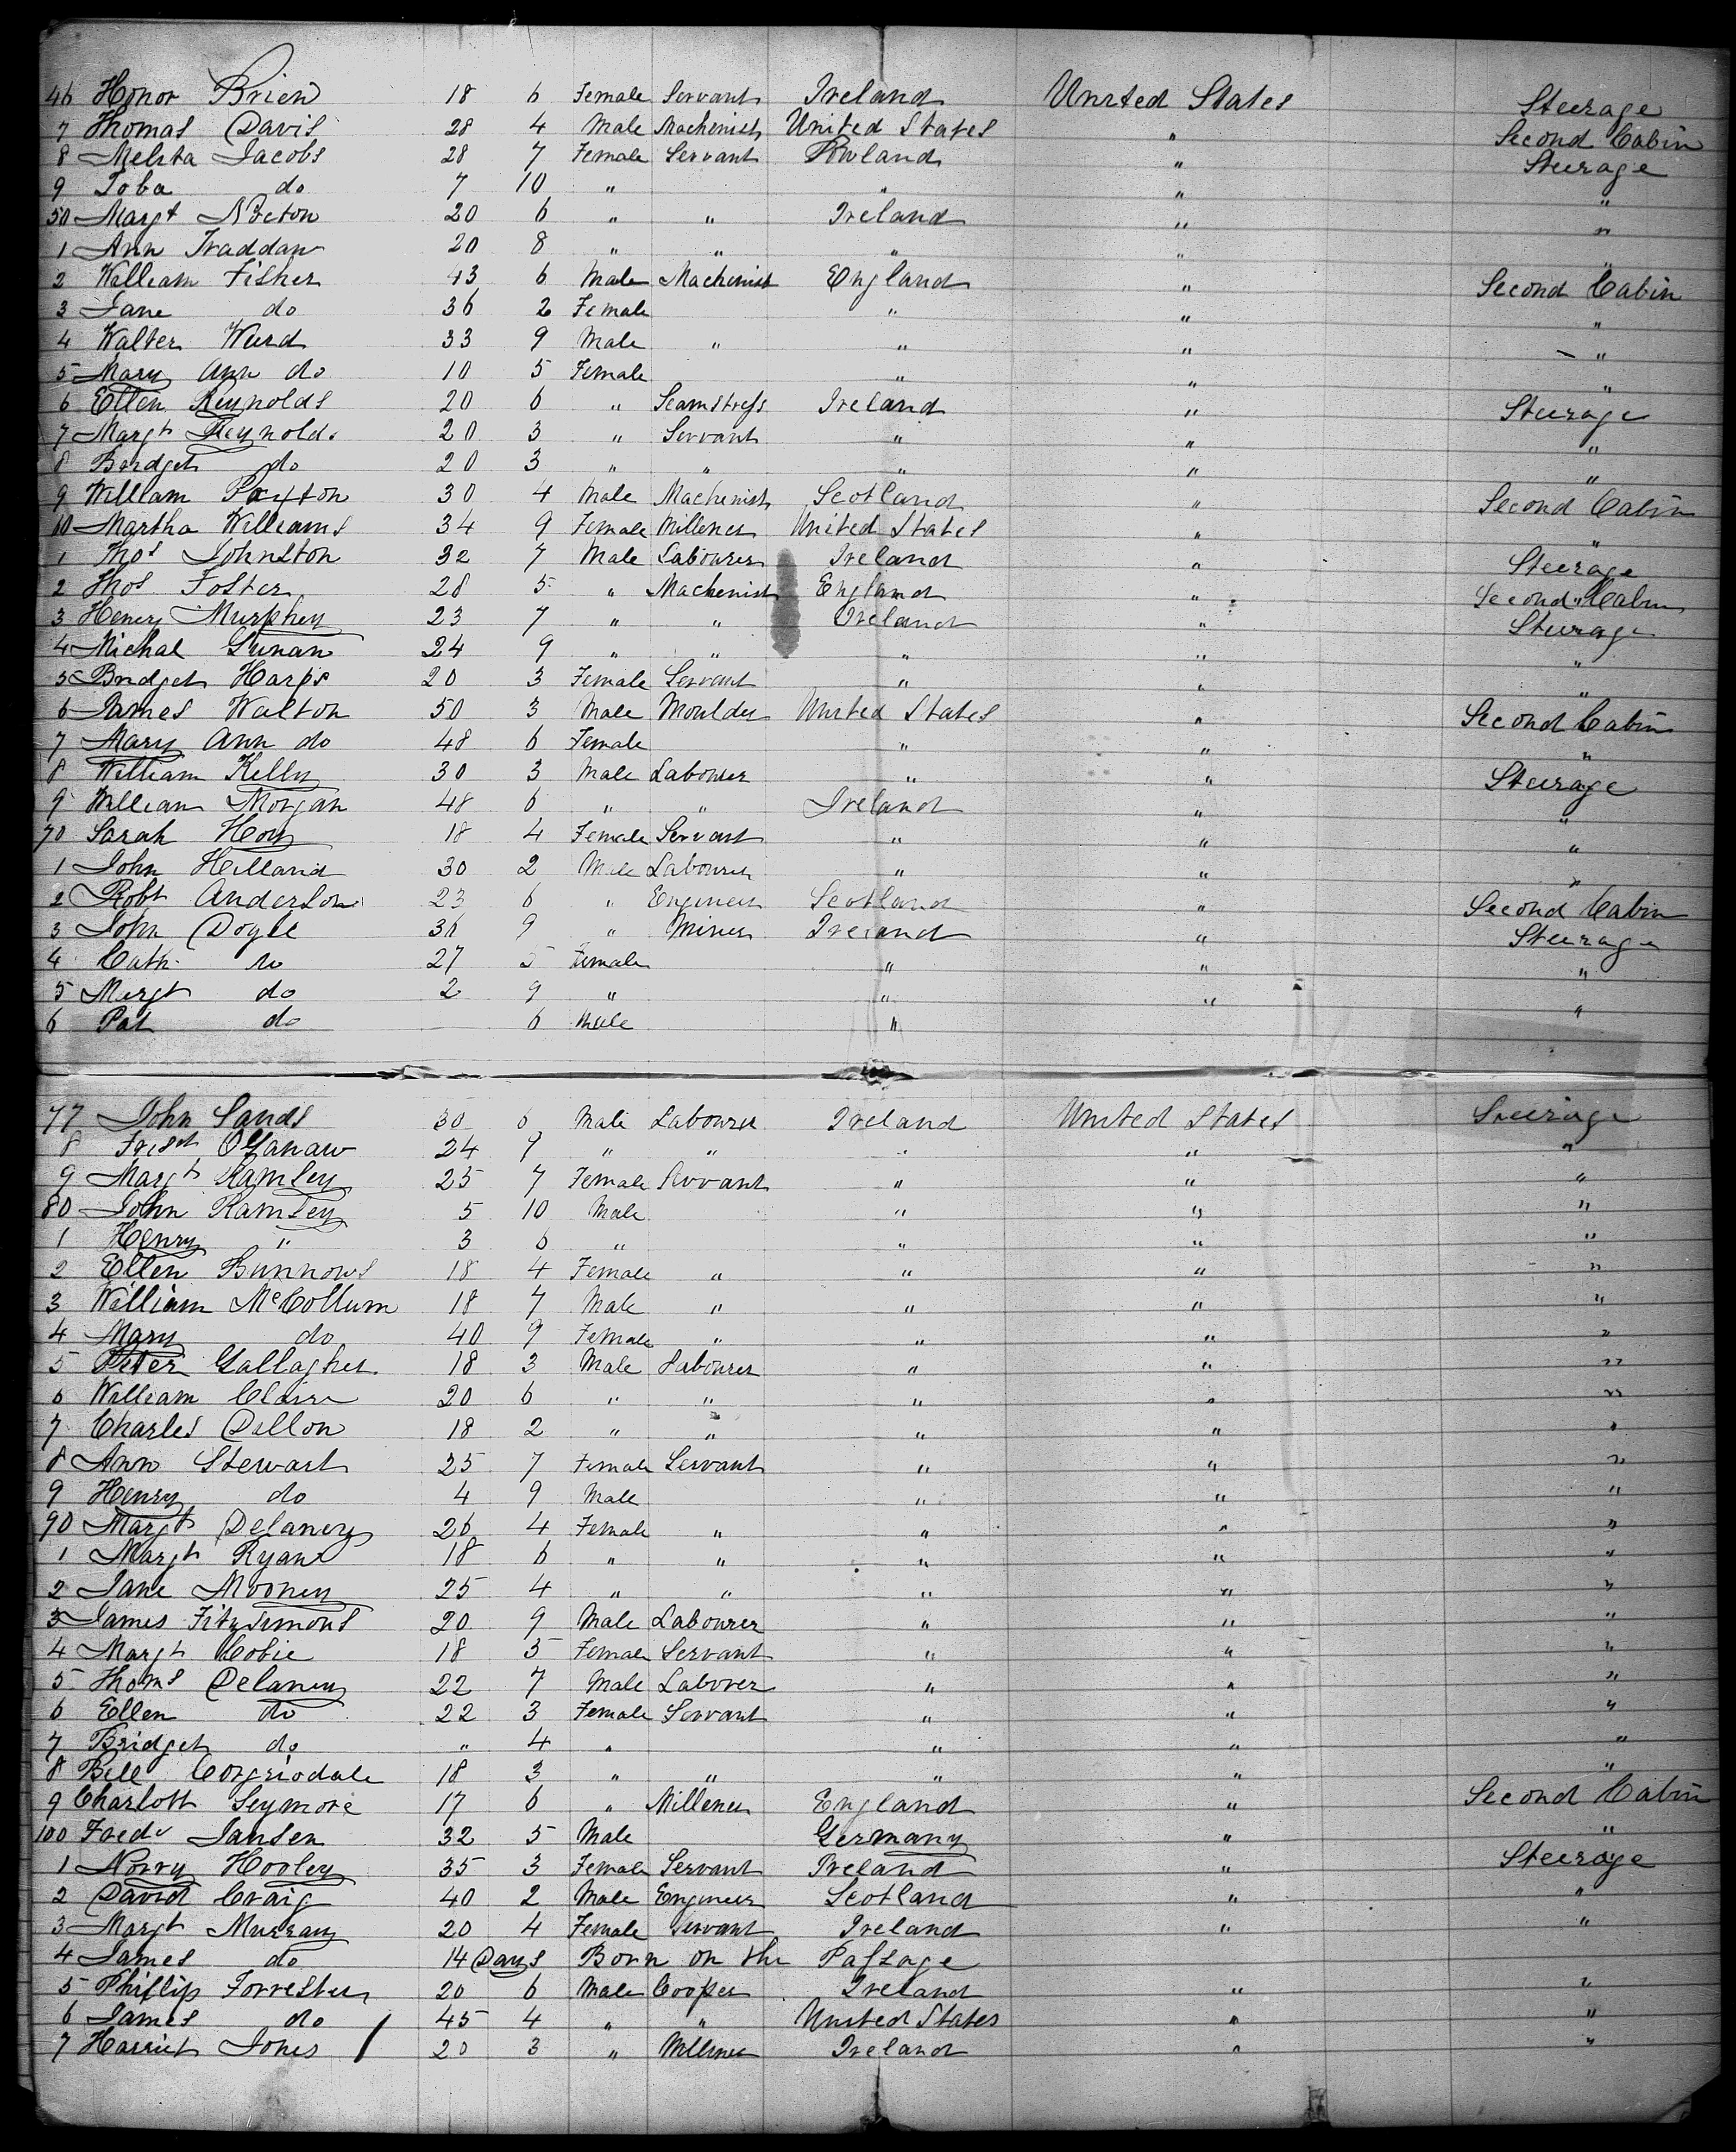 46 Honor Brien 18 6 Female Servant Ireland United States Steerage
7 Thomas Davis 28 4 Male Machenist United States " Second Cabin
8 Melita Jacobs 28 7 Female Servant Powland " Steerage
9 Toba do 7 10 " " " "
50 Margt Nreton 20 6 " " Ireland " "
1 Ann Traddan 20 8 " " " " "
2 William Fisher 43 6 Male Machenist England " Second Cabin
3 Jane do 36 2 Female " " "
4 Walter Ward 33 9 Male " " " "
5 Mary Ann do 10 5 Female " " "
6 Ellen Reynolds 20 6 " Seamstress Ireland " Steerage
7 Margt Reynolds 20 3 " Servant " " "
8 Bridget do 20 3 " " " " "
9 William Payton 30 4 Male Machenist Scotland " Second Cabin
60 Martha Williams 34 9 Female Millener United States " "
1 Thos Johnston 32 7 Male Labourer Ireland " Steerage
2 Thos Foster 28 5 " Machenist England " Second Cabin
3 Henery Murphey 23 7 " " Ireland " Steerage
4 Michal Gunan 24 9 " " " " "
5 Bridget Harps 20 3 Female Servant " " "
6 James Walton 50 3 Male Moulder United States " Second Cabin
7 Mary Ann do 48 6 Female " " "
8 William Kelly 30 3 Male Labourer " " Steerage
9 William Morgan 48 6 " " Ireland " "
70 Sarah Hoy 18 4 Female Servant " " "
1 John Hilland 30 2 Male Labourer " " "
2 Robt Anderson 23 6 " Engineer Scotland " Second Cabin
3 John Doyle 36 9 " Miner Ireland " Steerage
4 Cath do 27 5 Female " " "
5 Margt do 2 9 " " " "
6 Pat do 6 Male "
77 John Sands 30 6 Male Labourer Ireland United States Steerage
8 OGanaw 24 9 " " " " "
9 Margt Ramsey 25 7 Female Servant " " "
80 John Ramsey 5 10 Male " " "
1 Henry " 3 6 " " " "
2 Ellen Bunnows 18 4 Female " " " "
3 William McCollum 18 7 Male " " " "
4 Mary do 40 9 Female " " " "
5 Peter Gallagher 18 3 Male Labourer " " "
6 William Claire 20 6 " " " " "
7 Charles Dillon 18 2 " " " " "
8 Ann Stewart 25 7 Female Servant " " "
9 Henry do 4 9 Male " " "
90 Margt Delaney 26 4 Female " " " "
1 Margt Ryan 18 6 " " " " "
2 Jane Mooney 25 4 " " " " "
3 James Fitzsimons 20 9 Male Labourer " " "
4 Margt Cobie 18 5 Female Servant " " "
5 Thoms Delaney 22 7 Male Laborer " " "
6 Ellen do 22 3 Female Servant " " "
7 Bridget do " 4 " " " "
8 Bell Corgriodale 18 3 " " " " "
9 Charlott Seymore 17 6 " Millener England " Second Cabin
100 Fredr Jansen 32 5 Male Germany " "
1 Norry Hooley 35 3 Female Servant Ireland " Steerage
2 David Craig 40 2 Male Engineer Scotland " "
3 Margt Murray 20 4 Female Servant Ireland " "
4 James do 14 Days Born on the Passage
5 Phillip Forrester 20 6 Male Cooper Ireland " "
6 James do 45 4 " " United States " "
7 Harriet Jones 20 3 " Millener Ireland " "